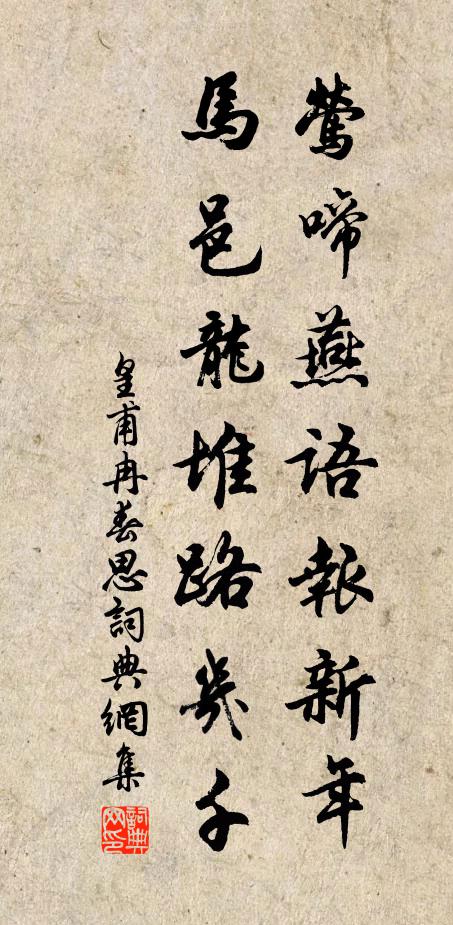 鶯啼燕語報新年
馬邑龍堆路幾千
皇甫冉春思詞典網集
詞典网印